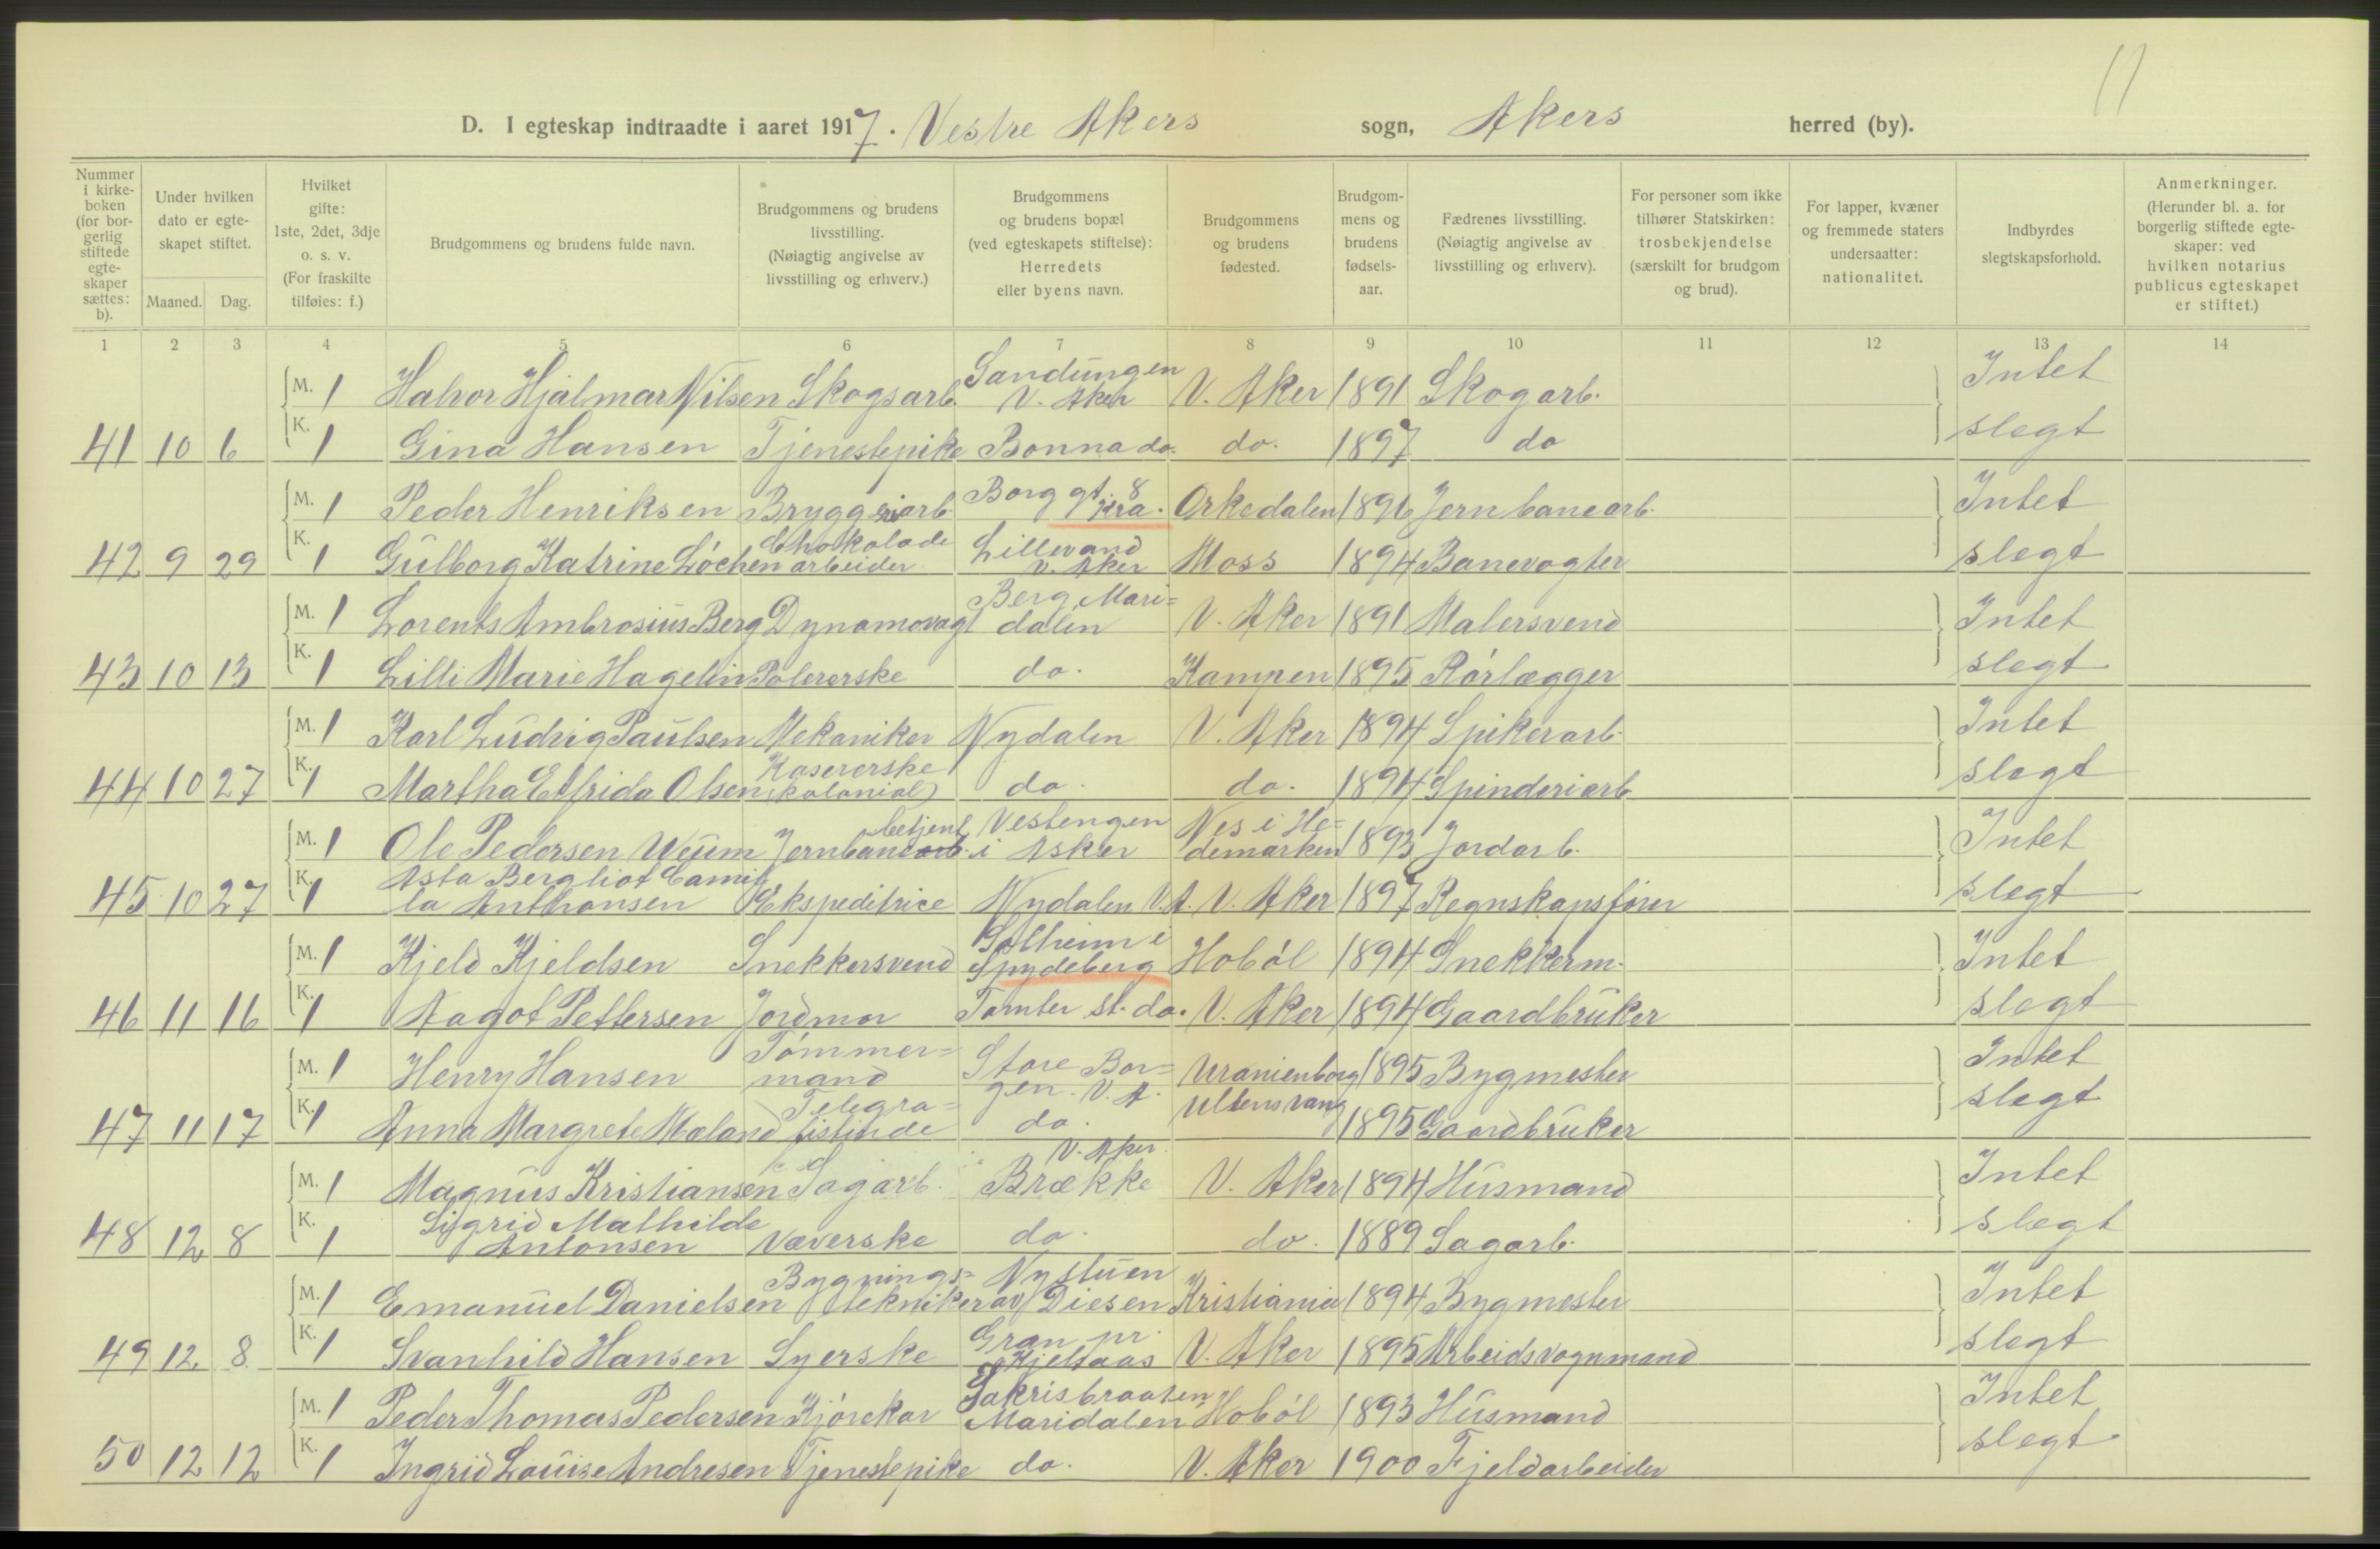 11
D. I egteskap indtraadte i aaret 1917. Vestre Akers sogn, Akers herred (by).
Nummer i kirkeboken (for borgerlig stiftede egteskaper sættes: b).
Under hvilken dato er egteskapet stiftet.
Maaned. Dag.
Hvilket gifte: 1ste, 2det, 3dje o. s. v. (For fraskilte tilføies: f.)
Brudgommens og brudens fulde navn.
Brudgommens og brudens livsstilling. (Nøiagtig angivelse av livsstilling og erhverv.)
Brudgommens og brudens bopæl (ved egteskapets stiftelse): Herredets eller byens navn.
Brudgommens og brudens fødested.
Brudgommens og brudens fødselsaar.
Fædrenes livsstilling. (Nøiagtig angivelse av livsstilling og erhverv).
For personer som ikke tilhører Statskirken: trosbekjendelse (særskilt for brudgom og brud).
For lapper, kvæner og fremmede staters undersaatter: nationalitet.
Indbyrdes slegtskapsforhold.
Anmerkninger. (Herunder bl. a. for borgerlig stiftede egteskaper: ved hvilken notarius publicus egteskapet er stiftet.)
1 2 3 4 5 6 7 8 9 10 11 12 13 14
M. 1 Halvor Hjalmar Nilsen Skogsarb. Sandungen V. Aker V. Aker 1891 Skogarb. Intet
41 10 6 K. 1 Gina Hansen Tjenestepike Bonna do. do. 1897 do slegt
M. 1 Peder Henriksen Bryggeriarb. Borggt 8 Kra. Orkedalen 1896 Jernbanearb. Intet
42 9 29 K. 1 Gulborg Katrine Løchen Chokolade arbeider Lillevand V. Aker Moss 1894 Banevogter slegt
M. 1 Lorents Ambrosius Berg Dynamovagt Berg, Mari=dalen V. Aker 1891 Malersvend Intet
43 10 13 K. 1 Lilli Marie Hagelin Polererske do. Kampen 1895 Rørlægger slegt
M. 1 Karl Ludvig Paulsen Mekaniker Nydalen V. Aker 1894 Spikerarb. Intet
44 10 27 K. 1 Martha Elfrida Olsen Kasererske (kolonial) do. do. 1894 Spinderiarb slegt
M. 1 Ole Pedersen Weum Jernbanearb. betjent Vestengen i Asker Nes i He=demarken 1893 Jordarb. Intet
45 10 27 K. 1 Asta Bergliot Camilla Anthonsen Ekspeditrice Nydalen V. A. V. Aker 1897 Regnskapsfører slegt
M. 1 Kjeld Kjeldsen Snekkersvend Solheim i Spydeberg Hobøl 1894 Snekkerm. Intet
46 11 16 K. 1 Aagot Pettersen Jordmor Tomter st. do. V. Aker 1894 Gaardbruker slegt
M. 1 Henry Hansen Tømmer=mand Store Bor=gen. V. A. Uranienborg 1895 Bygmester Intet
47 11 17 K. 1 Anna Margrete Mæland Telegra=fistinde do. Ullensvang 1895 Gaardbruker slegt
M. 1 Magnus Kristiansen Sagarb. V. Aker Brække V. Aker 1894 Husmand Intet
48 12 8 K. 1 Sigrid Mathilde Antonsen Væverske do. do. 1889 Sagarb. slegt
M. 1 Emanuel Danielsen Bygnings=tekniker Nystuen av Diesen Kristiania 1894 Bygmester Intet
49 12 8 K. 1 Svanhild Hansen Syerske Gran pr. Kjelsaas V. Aker 1895 Arbeidsvognmand slegt
M. 1 Peder Thomas Pedersen Kjørekar Sakrisbraaten Maridalen Hobøl 1893 Husmand Intet
50 12 12 K. 1 Ingrid Louise Andresen Tjenestepike do. V. Aker 1900 Fjeldarbeider slegt